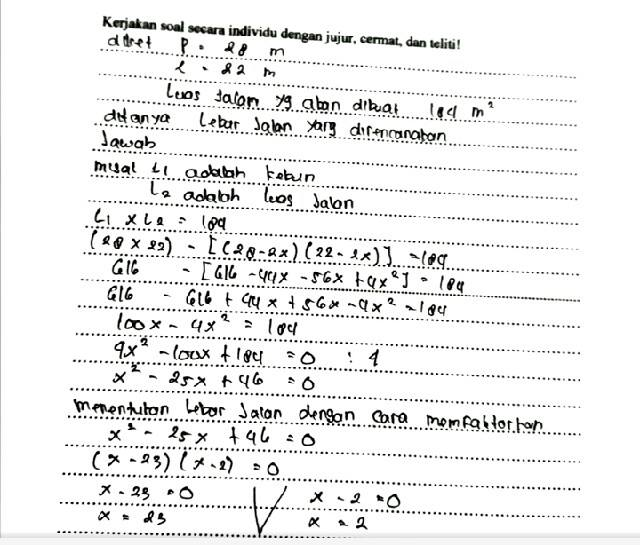 Kerjakan soal secara individu dengan jujur, cermat, dan teliti!
diket P = 28 m
l = 22 m
Luas jalan yg akan dibuat 184 m²
ditanya Lebar Jalan yang direncanakan
Jawab
misal L1 adalah kebun
L2 adalah luas Jalan
L1 x L2 = 184
(28 x 22) - [(28-2x) (22-2x)] = 184
616 - [616 - 44x - 56x + 4x²] = 184
616 - 616 + 44x + 56x - 4x² = 184
100x - 4x² = 184
4x² - 100x + 184 = 0 : 4
x² - 25x + 46 = 0
menentukan Lebar Jalan dengan cara memfaktorkan
x² - 25x + 46 = 0
(x - 23) (x - 2) = 0
x - 23 = 0 V x - 2 = 0
x = 23 x = 2